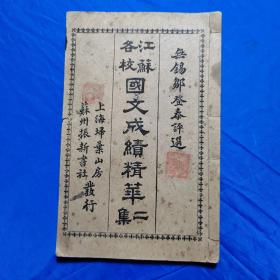 無錫鄒登泰評選
江蘇各校
國文成績精華二集
上海埽葉山房
蘇州振新書社發行